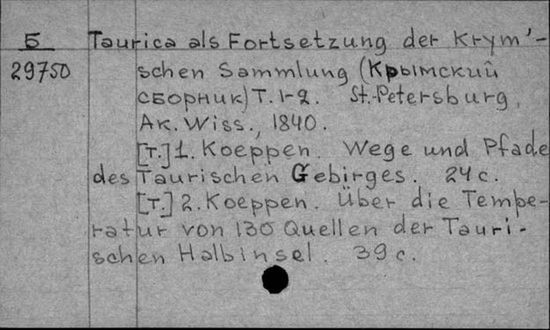 Б Taurica als Fortsetzung der Krym'-
29750 schen Sammlung (Крымский
сборник) T. 1-2. St.-Petersburg,
Ak. Wiss., 1840.
[T.] 1. Koeppen. Wege und Pfade
des Taurischen Gebirges. 24 c.
[T.] 2. Koeppen. Über die Tempe-
ratur von 130 Quellen der Tauri-
schen Halbinsel. 39 c.